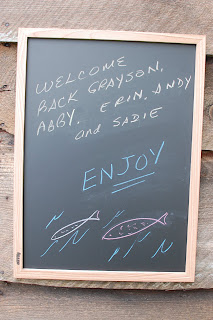 WELCOME
BACK GRAYSON,
ABBY. ERIN. ANDY
and SADIE
ENJOY